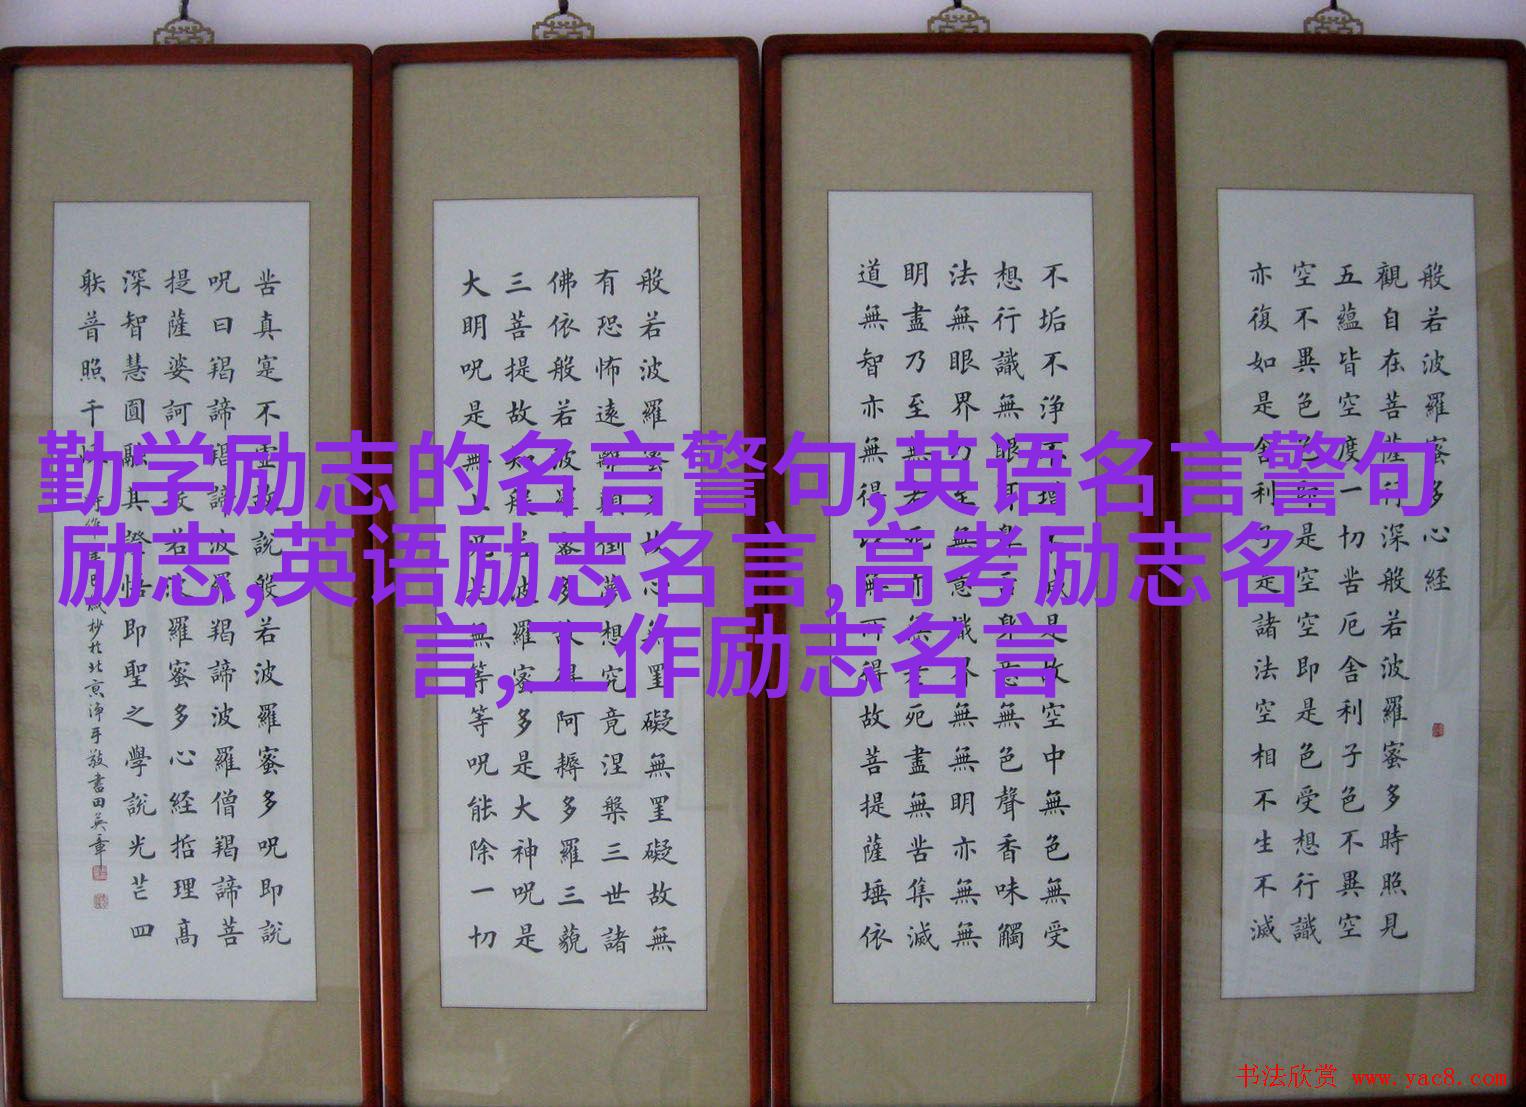 勤学励志的名言警句,英语名言警句
励志,英语励志名言,高考励志名
言,工作励志名言
般若波羅蜜多心経
觀自在菩薩行深般若波羅蜜多時照見
五蘊皆空度一切苦厄舍利子色不異空
空不異色色即是空空即是色受想行識
亦復如是舍利子是諸法空相不生不滅
不垢不浄不增不減是故空中無色無受
想行識無眼耳鼻舌身意無色聲香味觸
法無眼界乃至無意識界無無明亦無無
明盡乃至無老死亦無老死盡無苦集滅
道無智亦無得以無所得故菩提薩埵依
般若波羅蜜多故心無罣礙無罣礙故無
有恐怖遠離顛倒夢想究竟涅槃三世諸
佛依般若波羅蜜多故得阿耨多羅三藐
三菩提故知般若波羅蜜多是大神呪是
大明呪是無上呪是無等等呪能除一切
苦真寔不虛故說般若波羅蜜多呪即說
呪曰羯諦羯諦波羅羯諦波羅僧羯諦菩
提薩婆訶若波羅蜜多心経哲理高
深智慧圓融其證悟即聖之學說光芒四
普照千歲抄於北京敬書田英章
书法欣赏 www.yac8.com